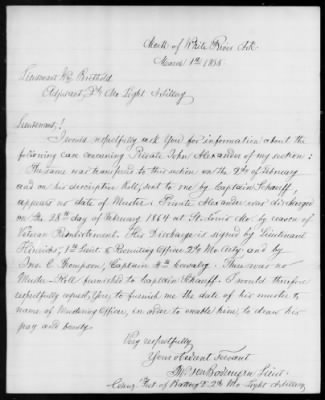 Mouth of White River Ark
March 1st 1865.
Lieutenant W. Berthold
Adjutant, 2d Mo Light Artillery
Lieutenant!
I would respectfully ask You for information about the
following case concerning Private John Alexander of my section:
The same was transferred to this section on the 2d of February
and on his descriptive Roll, sent to me by Captain Schauff,
appears no date of Muster. Private Alexander was discharged
on the 28th day of February 1864 at St. Louis Mo by reason of
Veteran Reenlistment. This Discharge is signed by Lieutenant
1st Lieut. & Recruiting Officer 2d Mo Arty and by
Jno. C. Thompson, Captain 4th Cavalry. There was no
Muster-Roll furnished to Captain Schauff. I would therefore
respectfully request, You, to furnish me the date of his muster &
name of Mustering Officer, in order to enable him, to draw his
pay and bounty.
Very respectfully
Your obedient Servant
von Bodungen Lieut.
Comg. Det of Battery D. 2d Mo Light Artillery